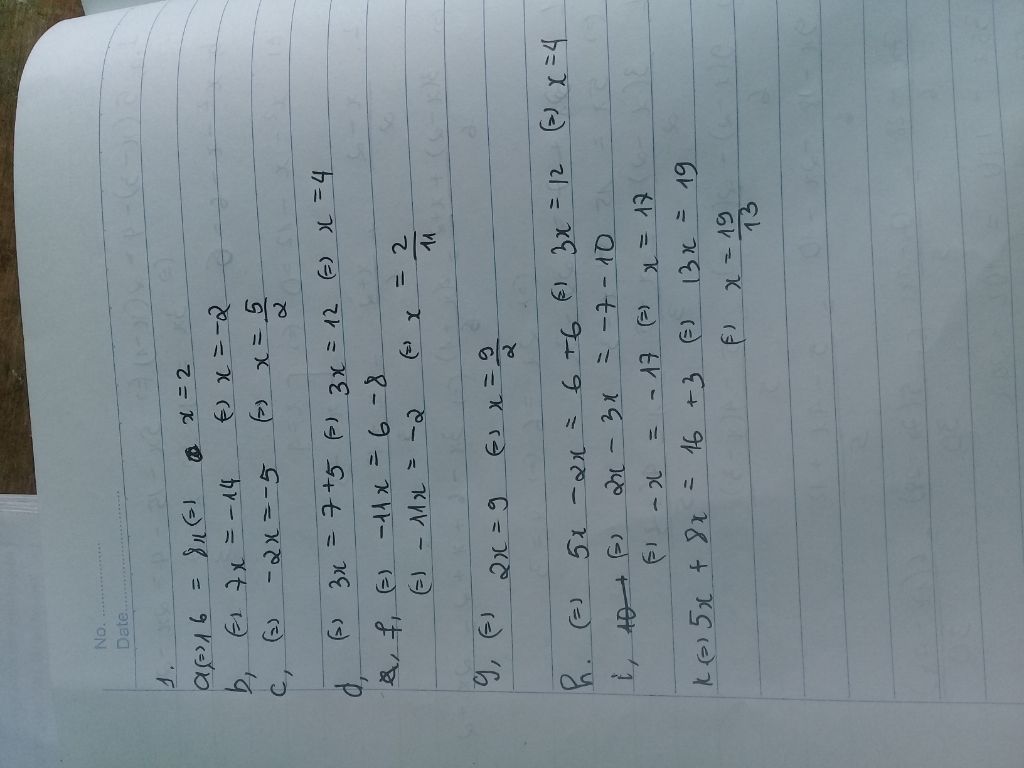 No. ....................
Date ....................
1.
a, (=) 16 = 8x (=) x = 2
b, (=) 7x = -14 (=) x = -2
c, (=) -2x = -5 (=) x = 5/2
d, (=) 3x = 7+5 (=) 3x = 12 (=) x = 4
f, (=) -11x = 6 - 8
(=) -11x = -2 (=) x = 2/11
g, (=) 2x = 9 (=) x = 9/2
h. (=) 5x - 2x = 6 + 6 (=) 3x = 12 (=) x = 4
i, (=) 2x - 3x = -7 - 10
(=) -x = -17 (=) x = 17
k (=) 5x + 8x = 16 + 3 (=) 13x = 19
(=) x = 19/13